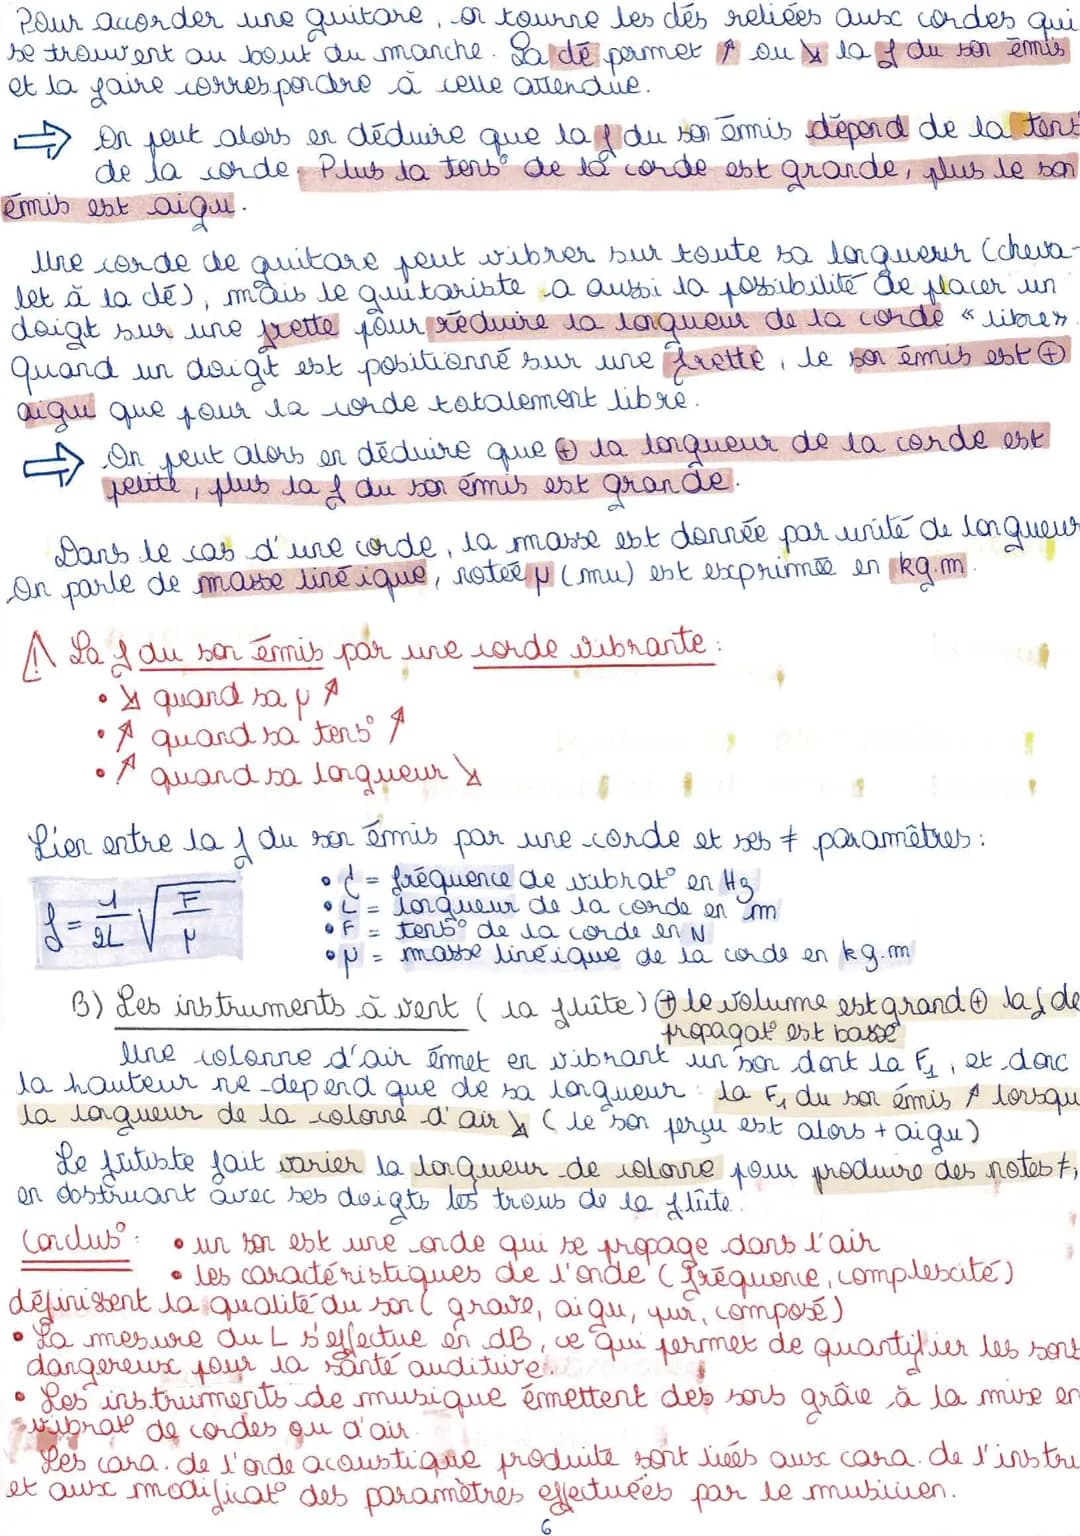 Pour accorder une guitare, on tourne les clés reliées aux cordes qui
se trouvent au bout du manche. La clé permet ↗ ou ↘ la f du son émis
et la faire correspondre à celle attendue.
⇒ On peut alors en déduire que la f du son émis dépend de la tens°
de la corde. Plus la tens° de la corde est grande, plus le son
émis est aigu.
Une corde de guitare peut vibrer sur toute sa longueur (cheva-
let à la clé), mais le guitariste a aussi la possibilité de placer un
doigt sur une frette pour réduire la longueur de la corde « libre».
Quand un doigt est positionné sur une frette, le son émis est ⊕
aigu que pour la corde totalement libre.
⇒ On peut alors en déduire que ⊕ la longueur de la corde est
petite, plus la f du son émis est grande.
Dans le cas d'une corde, la masse est donnée par unité de longueur
On parle de masse linéique, notée μ (mu) est exprimée en kg.m.
⚠ La f du son émis par une corde vibrante :
• ↘ quand sa μ ↗
• ↗ quand sa tens° ↗
• ↗ quand sa longueur ↘
Lien entre la f du son émis par une corde et ses ≠ paramètres :
f = 1/2L √F/μ
• f = fréquence de vibrat° en Hz
• L = longueur de la corde en m
• F = tens° de la corde en N
• μ = masse linéique de la corde en kg.m
B) Les instruments à vent ( la flûte) ⊕ le volume est grand ⊕ la f de
propagat° est basse
Une colonne d'air émet en vibrant un son dont la F1, et donc
la hauteur ne depend que de sa longueur : la F1 du son émis ↗ lorsqu
la longueur de la colonne d'air ↘ ( le son perçu est alors + aigu)
Le flûtiste fait varier la longueur de colonne pour produire des notes ≠,
en obstruant avec ses doigts les trous de la flûte.
Conclus° : • un son est une onde qui se propage dans l'air
• les caractéristiques de l'onde ( fréquence, complexité)
définissent la qualité du son ( grave, aigu, pur, composé)
• La mesure du L s'effectue en dB, ce qui permet de quantifier les sons
dangereux pour la santé auditive.
• Les instruments de musique émettent des sons grâce à la mise en
vibrat° de cordes ou d'air.
Les cara. de l'onde acoustique produite sont liées aux cara. de l'instru
et aux modificat° des paramètres effectuées par le musicien.
6